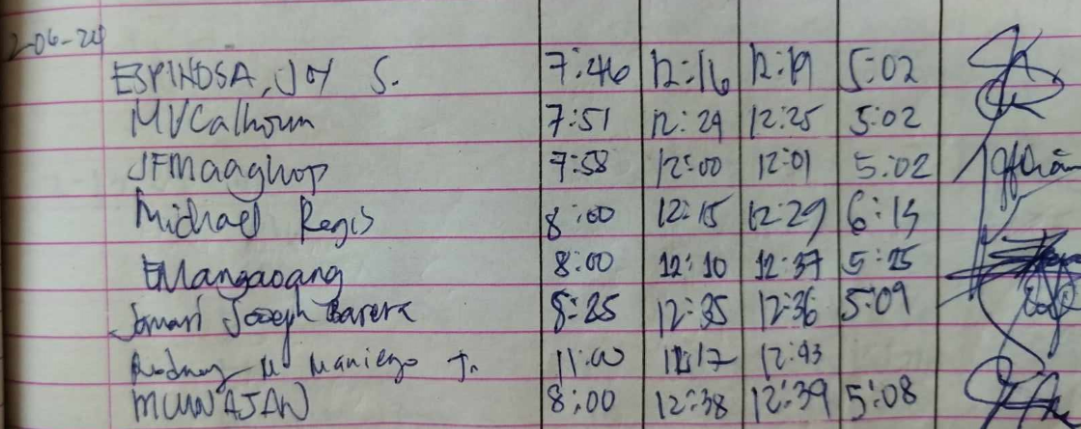 2-06-24
ESPINOSA, JOY S. 7:46 12:16 12:19 5:02
MVCalhoun 7:51 12:24 12:25 5:02
JFMaaghop 7:58 12:00 12:01 5:02
Michael Regis 8:00 12:15 12:29 6:15
EMangaoang 8:00 12:10 12:37 5:25
Joseph 8:25 12:35 12:36 5:09
Rodney M Maniego Jr. 11:00 12:17 12:43
8:00 12:38 12:39 5:08